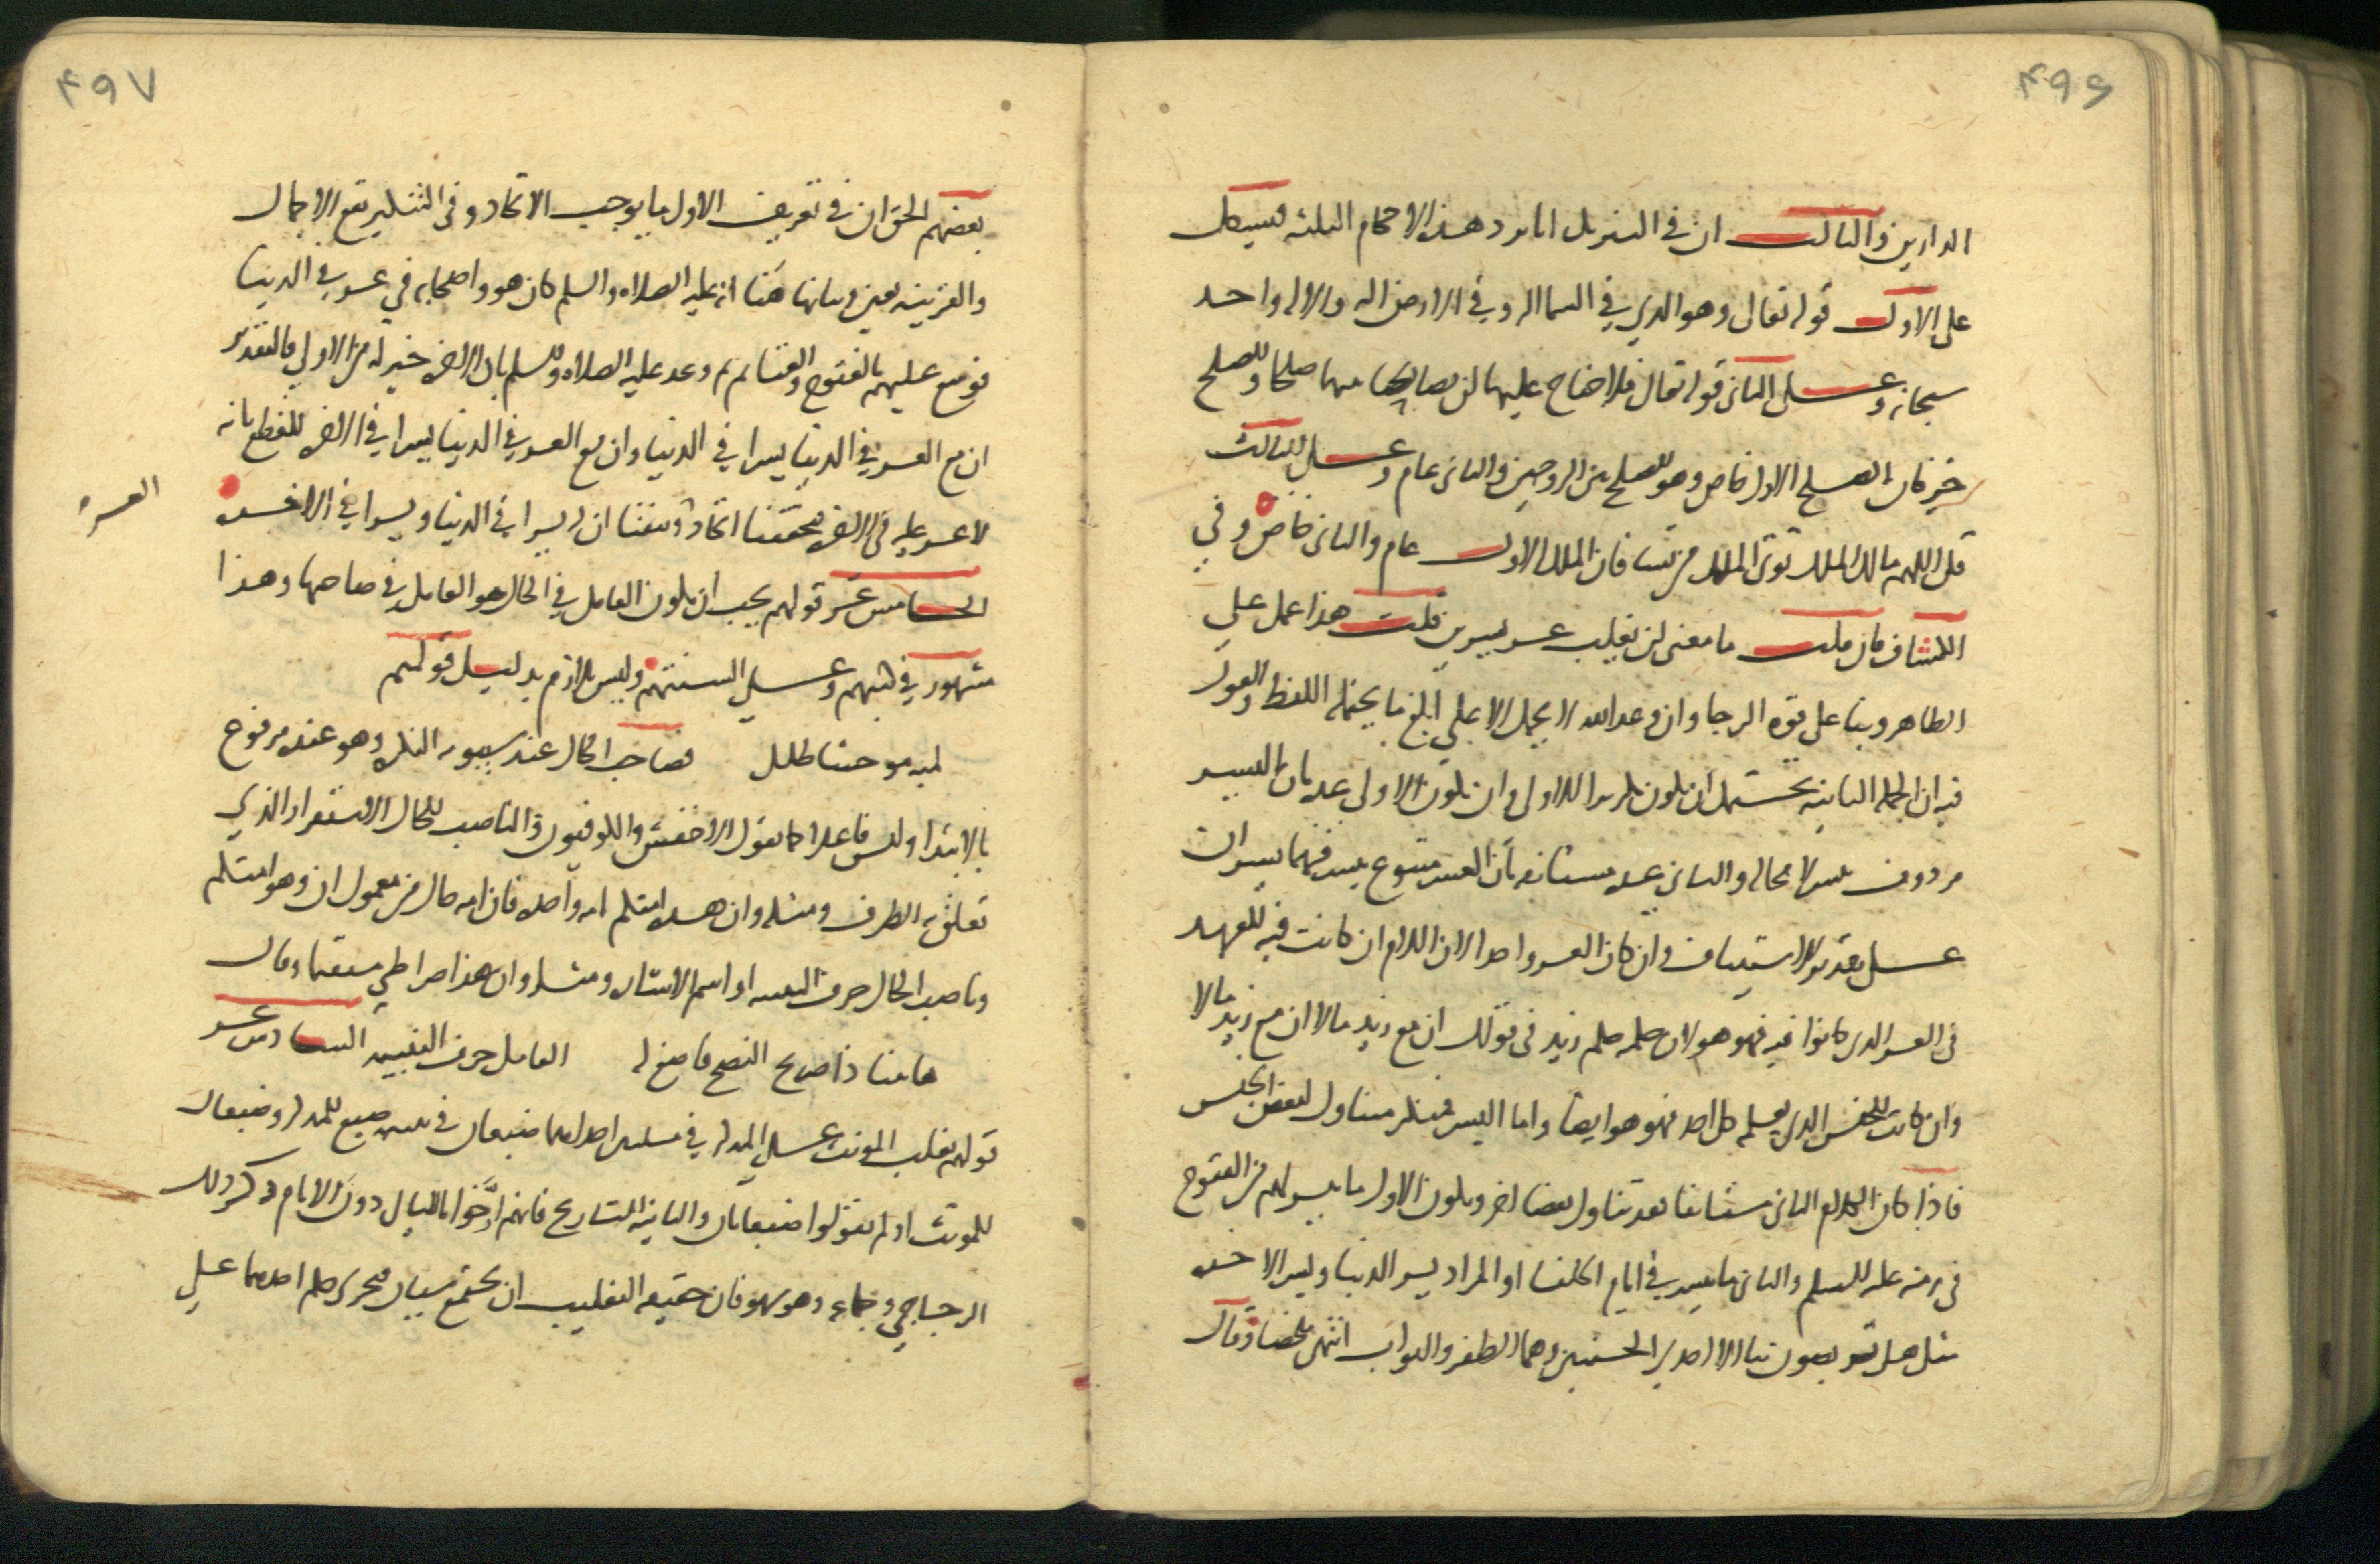 ۴۹۶
الدارين والثالث ان في التنزيل ايات ترد هذه الاحكام الثلثة فيشكل
على الاول قوله تعالى وهو الذي في السما اله وفي الارض اله والاله واحد
سبحانه وعلى الثاني قوله تعالى فلا جناح عليهما ان يصالحا بينهما صلحا والصلح
خير فان الصلح الاول خاص وهو الصلح بين الزوجين والثاني عام وعلى الثالث
قل اللهم مالك الملك توتي الملك من تشا فان الملك الاول عام والثاني خاص وفي
الكشاف فان قلت ما معنى لن يغلب عسر يسرين قلت هذا عمل على
الظاهر وبنا على قوة الرجا وان وعد الله لا يحمل الا على ابلغ ما يحتمله اللفظ والقول
فيه ان الجملة الثانية يحتمل ان يكون تكريرا للاولى وان يكون الاولى عدة بان العسر
مردوف بيسر لا محالة والثاني عدة مستانفة بان العسر متبوع بيسر فهما يسران
على تقدير الاستيناف وان كان العسر واحدا لان اللام ان كانت فيه للعهد
في العسر الذي كانوا فيه فهو هو لان حكمه حكم زيد في قولك ان مع زيد مالا ان مع زيد مالا
وان كانت للجنس الذي يعلمه كل احد فهو هو ايضا واما اليسر فمنكر متناول لبعض الجنس
فاذا كان الكلام الثاني مستانفا فقد تناول بعضا اخر ويكون الاول ما تيسر لهم من الفتوح
في زمنه عليه السلم والثاني ما تيسر في ايام الخلفا او المراد يسر الدنيا ويسر الاخرة
مثل هل تربصون بنا الا احدى الحسنيين وهما الظفر والثواب انتهى ملخصا وقال
۴۹۷
بعضهم الحق ان في تعريف الاول ما يوجب الاتحاد وفي التنكير يقع الاحتمال
والقرينة تعين وبيانها هنا انه عليه الصلاه والسلم كان هو واصحابه في عسر في الدينا
فوسع عليهم بالفتوح والغنايم ثم وعد عليه الصلاه والسلم بان الاخرة خير له من الاولى فالتقدير
ان مع العسر في الدينا يسرا في الدنيا وان مع العسر في الدينا يسرا في الاخرة للقطع بانه
لا عسر عليه في الاخرة فتحققنا اتحاد وتيقنا ان له يسرا في الدنيا ويسرا في الاخرة
العسر
الخامس عشر قولهم يجب ان يكون العامل في الحال هو العامل في صاحبها وهذا
مشهور في كتبهم وعلى السنتهم وليس بلازم بدليل قولهم
لمية موحشا طلل فصاحب الحال عند سيبويه النكرة وهو عنده مرفوع
بالابتدا وليس فاعلا كما يقول الاخفش والكوفيون والناصب للحال الاستقرار الذي
تعلق به الظرف ومثله وان هذه امتكم امة واحدة فان امة حال من معمول ان وهو امتكم
وناصب الحال حرف التنبيه او اسم الاشاره ومثله وان هذا صراطي مستقيما وقال
هابينا ذا صريح النصح فاصغ له العامل حرف التنبيه السادس عشر
قولهم يغلب المونث على المذكر في مسئلتين احداهما ضبعان في تثنية ضبع للمذكر وضبعان
للمونث اذ لم يقولوا ضبعانان والثانية التاريخ فانهم ارّخوا بالليال دون الايام ذكر ذلك
الزجاجي وجماعة وهو سهو فان حقيقة التغليب ان يجتمع شيئان فيجرى حكم احدهما على